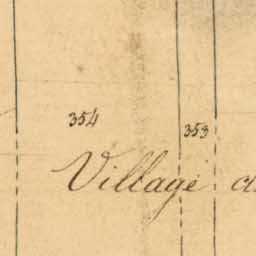 354
353
Village